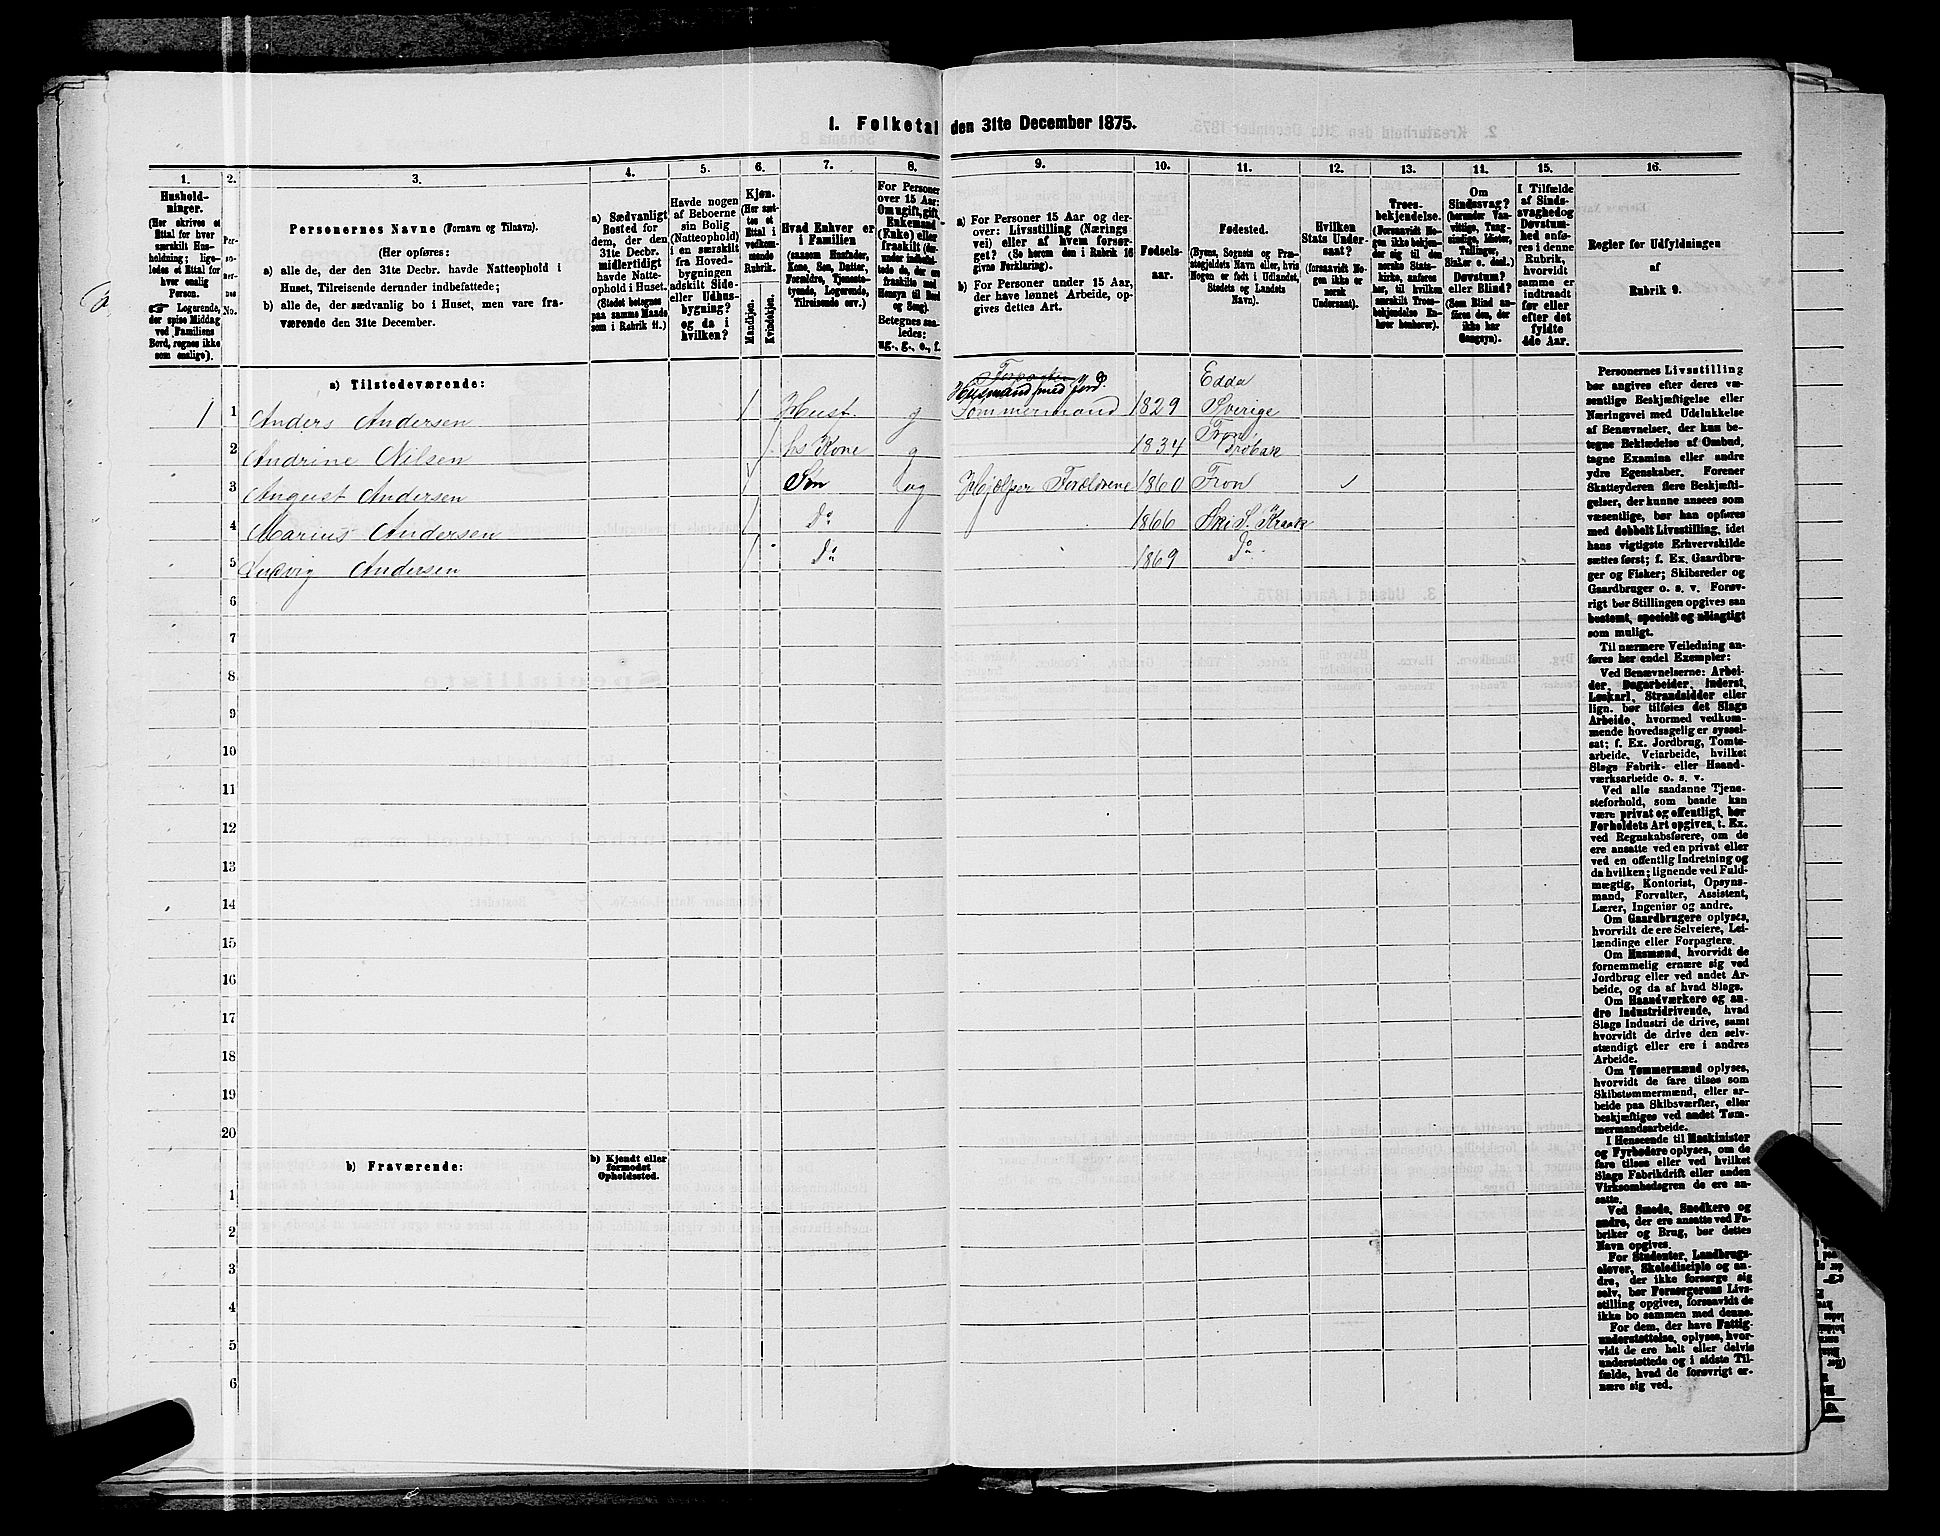 1. Folketal den 31te December 1875.
1. 2. 3. 4. 5. 6. 7. 8. 9. 10. 11. 12. 13. 14. 15. 16.
Husholdninger.
(Her skrives et Ettal for hver særskilt Husholdning; ligeledes et Ettal for hver enlig Person.
☛ Logerende, der spise Middag ved Familiens Bord, regnes ikke som enslige).
Personernes No.
Personernes Navne (Fornavn og Tilnavn).
(Her opføres:
a) alle de, der den 31te Decbr. havde Natteophold i Huset, Tilreisende derunder indbefattede;
b) alle de, der sædvanlig bo i Huset, men vare fraværende den 31te December.
a) Sædvanligt Bosted for dem, der den 31te Decbr. midlertidigt havde Natteophold i Huset.
(Stedet betegnes paa samme Maade som i Rubrik 11.)
Havde nogen af Beboerne sin Bolig (Natteophold) i en særskilt fra Hovedbygningen adskilt Side- eller Udhusbygning? og da i hvilken?
Kjøn.
(Her sættes et Ettal i vedkommende Rubrik.
Mandkjøn. Kvindekjøn.
Hvad Enhver er i Familien
(saasom Husfader, Kone, Søn, Datter, Forældre, Tjenestetyende, Logerende, Tilreisende osv.)
For Personer over 15 Aar: Om ugift, gift, Enkemand (Enke) eller fraskilt (derunder indbefattede de, der ere fraskilte med Hensyn til Bord og Seng).
Betegnes saaledes: ug., g., e., f.
a) For Personer 15 Aar og derover: Livsstilling (Næringsvei) eller af hvem forsørget? (Se herom den i Rubrik 16 givne Forklaring).
b) For Personer under 15 Aar, der have lønnet Arbeide, opgives dettes Art.
Fødselsaar.
Fødested.
(Byens, Sognets og Præstegjeldets Navn eller, hvis Nogen er født i Udlandet, Stedets og Landets Navn).
Hvilken Stats Undersaat?
(forsaavidt Nogen ikke er norsk Undersaat).
Troesbekjendelse.
(Forsaavidt Nogen ikke bekjender sig til den norske Statskirke, anføres her, til hvilken særskilt Troesbekjendelse Enhver henhører).
Om Sindssvag?
(herunder Vanvittige, Tungsindige, Idioter, Tullinger, Sinker o. desl.)
Døvstum? eller Blind?
(Som Blind anføres den, der ikke har Gangsyn).
I Tilfælde af Sindssvaghed og Døvstumhed anføres i denne Rubrik, hvorvidt samme er indtraadt før eller efter det fyldte 4de Aar.
Regler for Udfyldningen
af
Rubrik 9.
a) Tilstedeværende:
Forpagter
Husmand med Jord Edda
1 1 Anders Andersen 1 Husf. g Tømmermand 1829 Sverige
2 Andrine Nilsen 1 hs Kone g 1834 Drøbak
3 August Andersen 1 Søn ug Hjælper Forældrene 1860 Fron
4 Marius Andersen 1 do 1866 Ski S. Kraak
5 Ludvig Andersen 1 do 1869 do
6
7
8
9
10
11
12
13
14
15
16
17
18
19
20
b) Fraværende:
b) Kjendt eller formodet Opholdssted.
1
2
3
4
5
6
Personernes Livsstilling
bør angives efter deres væ-
sentlige Beskjæftigelse eller
Næringsvei med Udelukkelse
af Benævnelser, der kun be-
tegne Beklædelse af Ombud,
tagne Examina eller andre
ydre Egenskaber. Forener
Skatteyderen flere Beskjæfti-
gelser, der kunne ansees som
væsentlige, bør han opføres
med dobbelt Livsstilling, idet
hans vigtigste Erhvervskilde
sættes først; f. Ex. Gaardbru-
ger og Fisker; Skibsreder og
Gaardbruger o. s. v. Forøv-
rigt bør Stillingen opgives saa
bestemt, specielt og nøiagtigt
som muligt.
Til nærmere Veiledning an-
føres her endel Exempler:
Ved Benævnelserne: Arbei-
der, Dagarbeider, Inderst,
Løskarl, Strandsidder eller
lign. bør tilføies det Slags
Arbeide, hvormed vedkom-
mende hovedsagelig er syssel-
sat; f. Ex. Jordbrug, Tomte-
arbeide, Veiarbeide, hvilket
Slags Fabrik- eller Haand-
værksarbeide o. s. v.
Ved alle saadanne Tjene-
steforhold, som baade kan
være privat og offentligt, bør
Forholdets Art opgives, t. Ex.
ved Regnskabsførere, om de
ere ansatte ved en privat eller
ved en offentlig Indretning og
da hvilken; lignende ved Fuld-
mægtig, Kontorist, Opsyns-
mand, Forvalter, Assistent,
Lærer, Ingeniør og andre.
Om Gaardbrugere oplyses,
hvorvidt de ere Selveiere, Lei-
lændinge eller Forpagtere.
Om Husmænd, hvorvidt de
fornemmelig ernære sig ved
Jordbrug eller ved andet Ar-
beide, og da af hvad Slags.
Om Haandværkere og an-
dre Industridrivende, hvad
Slags Industri de drive, samt
hvorvidt de drive den selv-
stændigt eller ere i andres
Arbeide.
Om Tømmermænd oplyses,
hvorvidt de fare tilsøs som
Skibstømmermænd, eller ar-
beide paa Skibsværfter, eller
beskjæftiges ved andet Tøm-
mermandsarbeide.
I Henseende til Maskinister
og Fyrbødere oplyses, om de
fare tilsøs eller ved hvilket
Slags Fabrikdrift eller anden
Virksomhedsgren de ere an-
satte.
Ved Smede, Snedkere og
andre, der ere ansatte ved Fa-
briker og Brug, bør dettes
Navn opgives.
For Studenter, Landbrugs-
elever, Skoledisciple og an-
dre, der ikke forsørge sig
selv, bør Forsørgerens Livs-
stilling opgives, forsaavidt de
ikke bo sammen med denne.
For dem, der have Fattig-
understøttelse, oplyses, hvor-
vidt de ere helt eller delvis
understøttede og i sidste Til-
fælde, hvad de forøvrigt er-
nære sig ved.